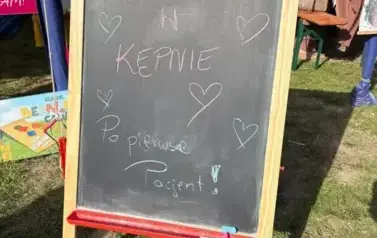 AM!
N
KĘPNIE
Po pierwsze
Pacjent!